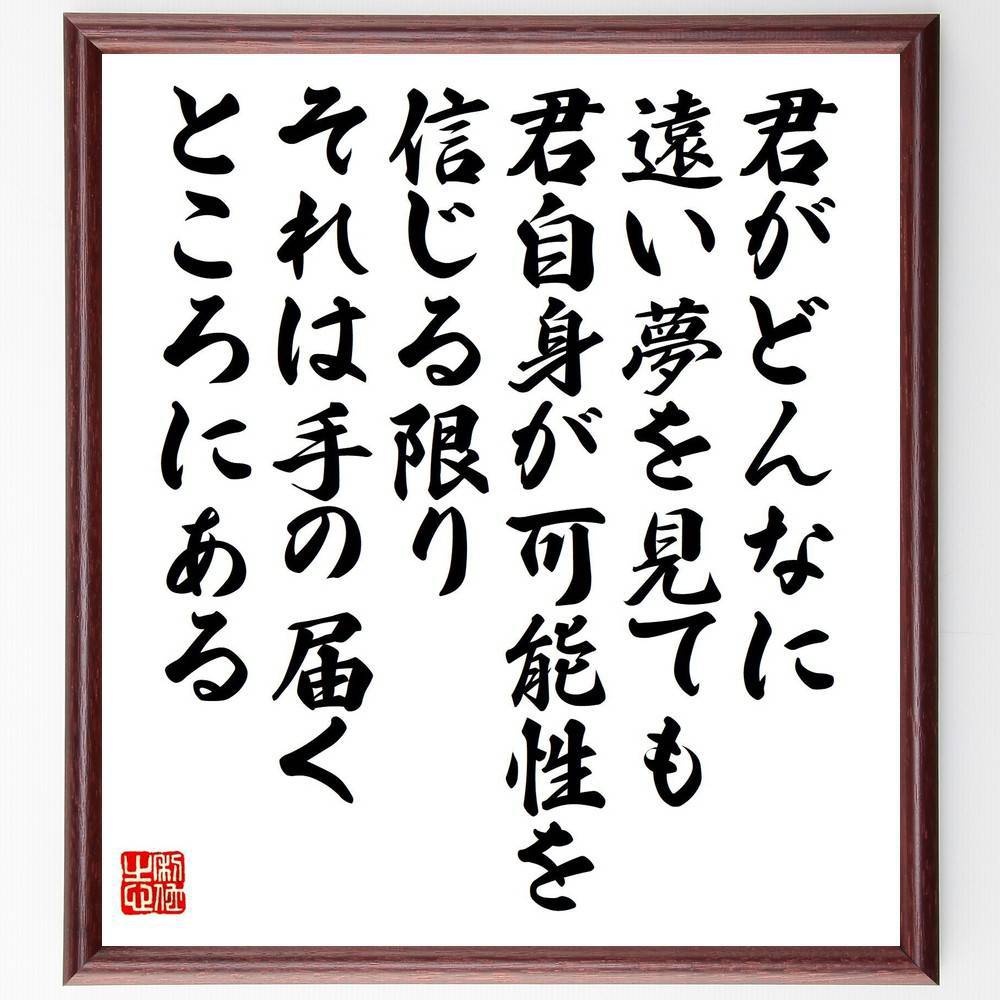 君がどんなに
遠い夢を見ても
君自身が可能性を
信じる限り
それは手の届く
ところにある